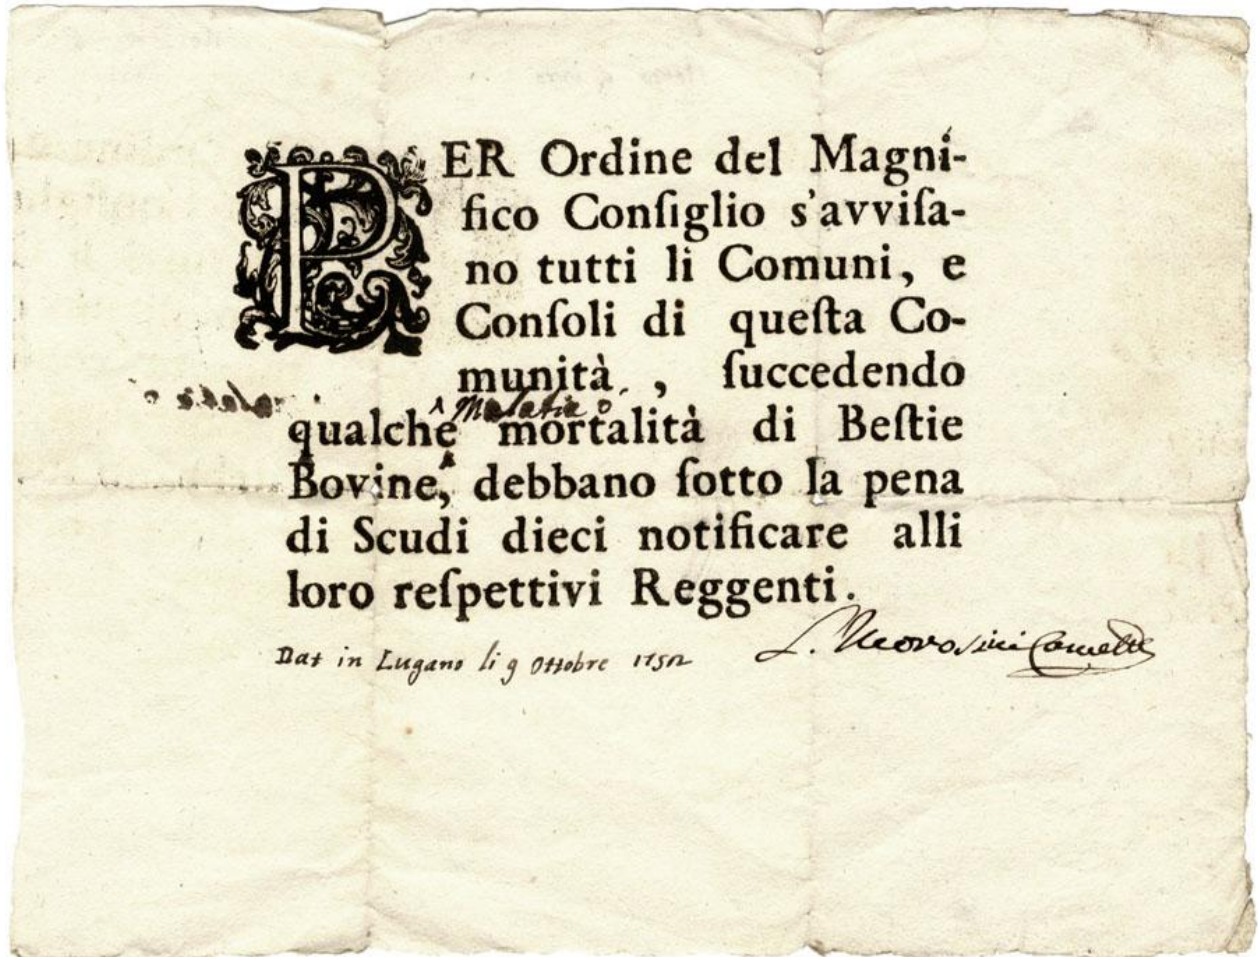 PER Ordine del Magni-
fico Conſiglio s'avviſa-
no tutti li Comuni, e
Conſoli di queſta Co-
munità, ſuccedendo
^ Malatia o
qualche mortalità di Beſtie
Bovine, debbano ſotto la pena
di Scudi dieci notificare alli
loro reſpettivi Reggenti.
Dat in Lugano li 9 Ottobre 1752